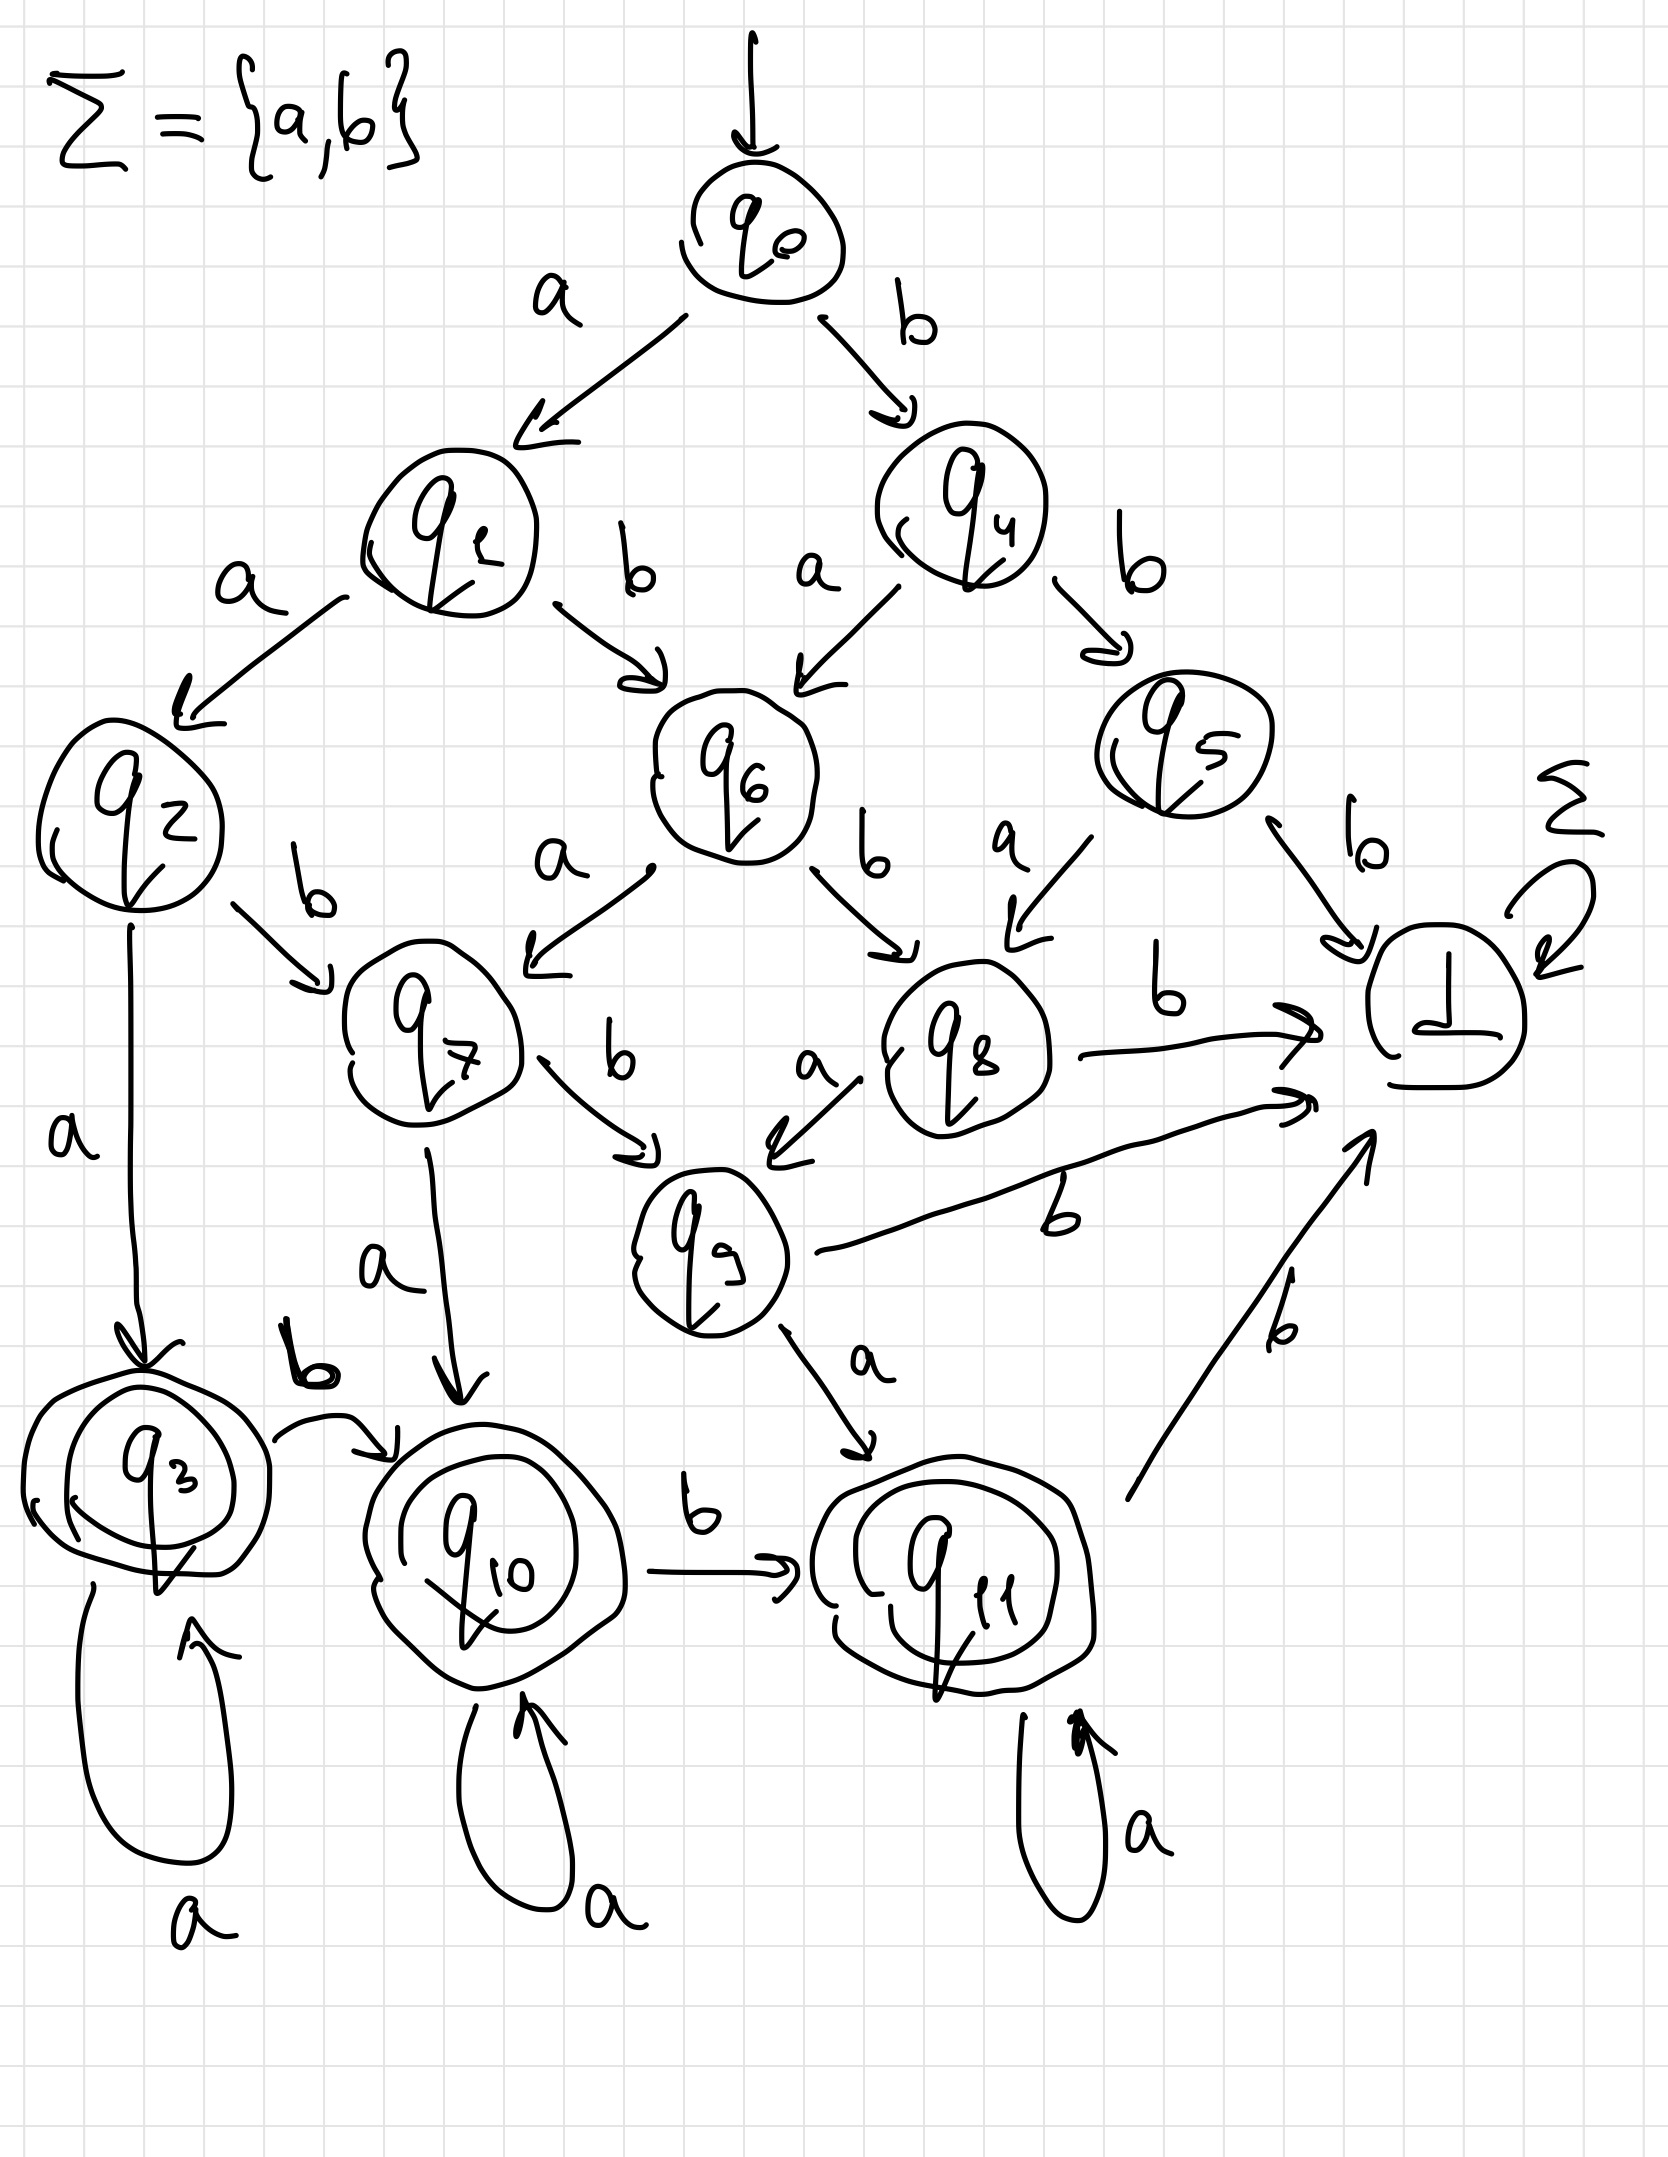 Σ = {a,b}
q0
a
b
q1
q4
a
b
a
b
q2
q6
q5
Σ
b
a
b
a
b
q7
q8
⊥
a
b
a
b
q9
b
a
b
a
b
q3
q10
b
q11
a
a
a